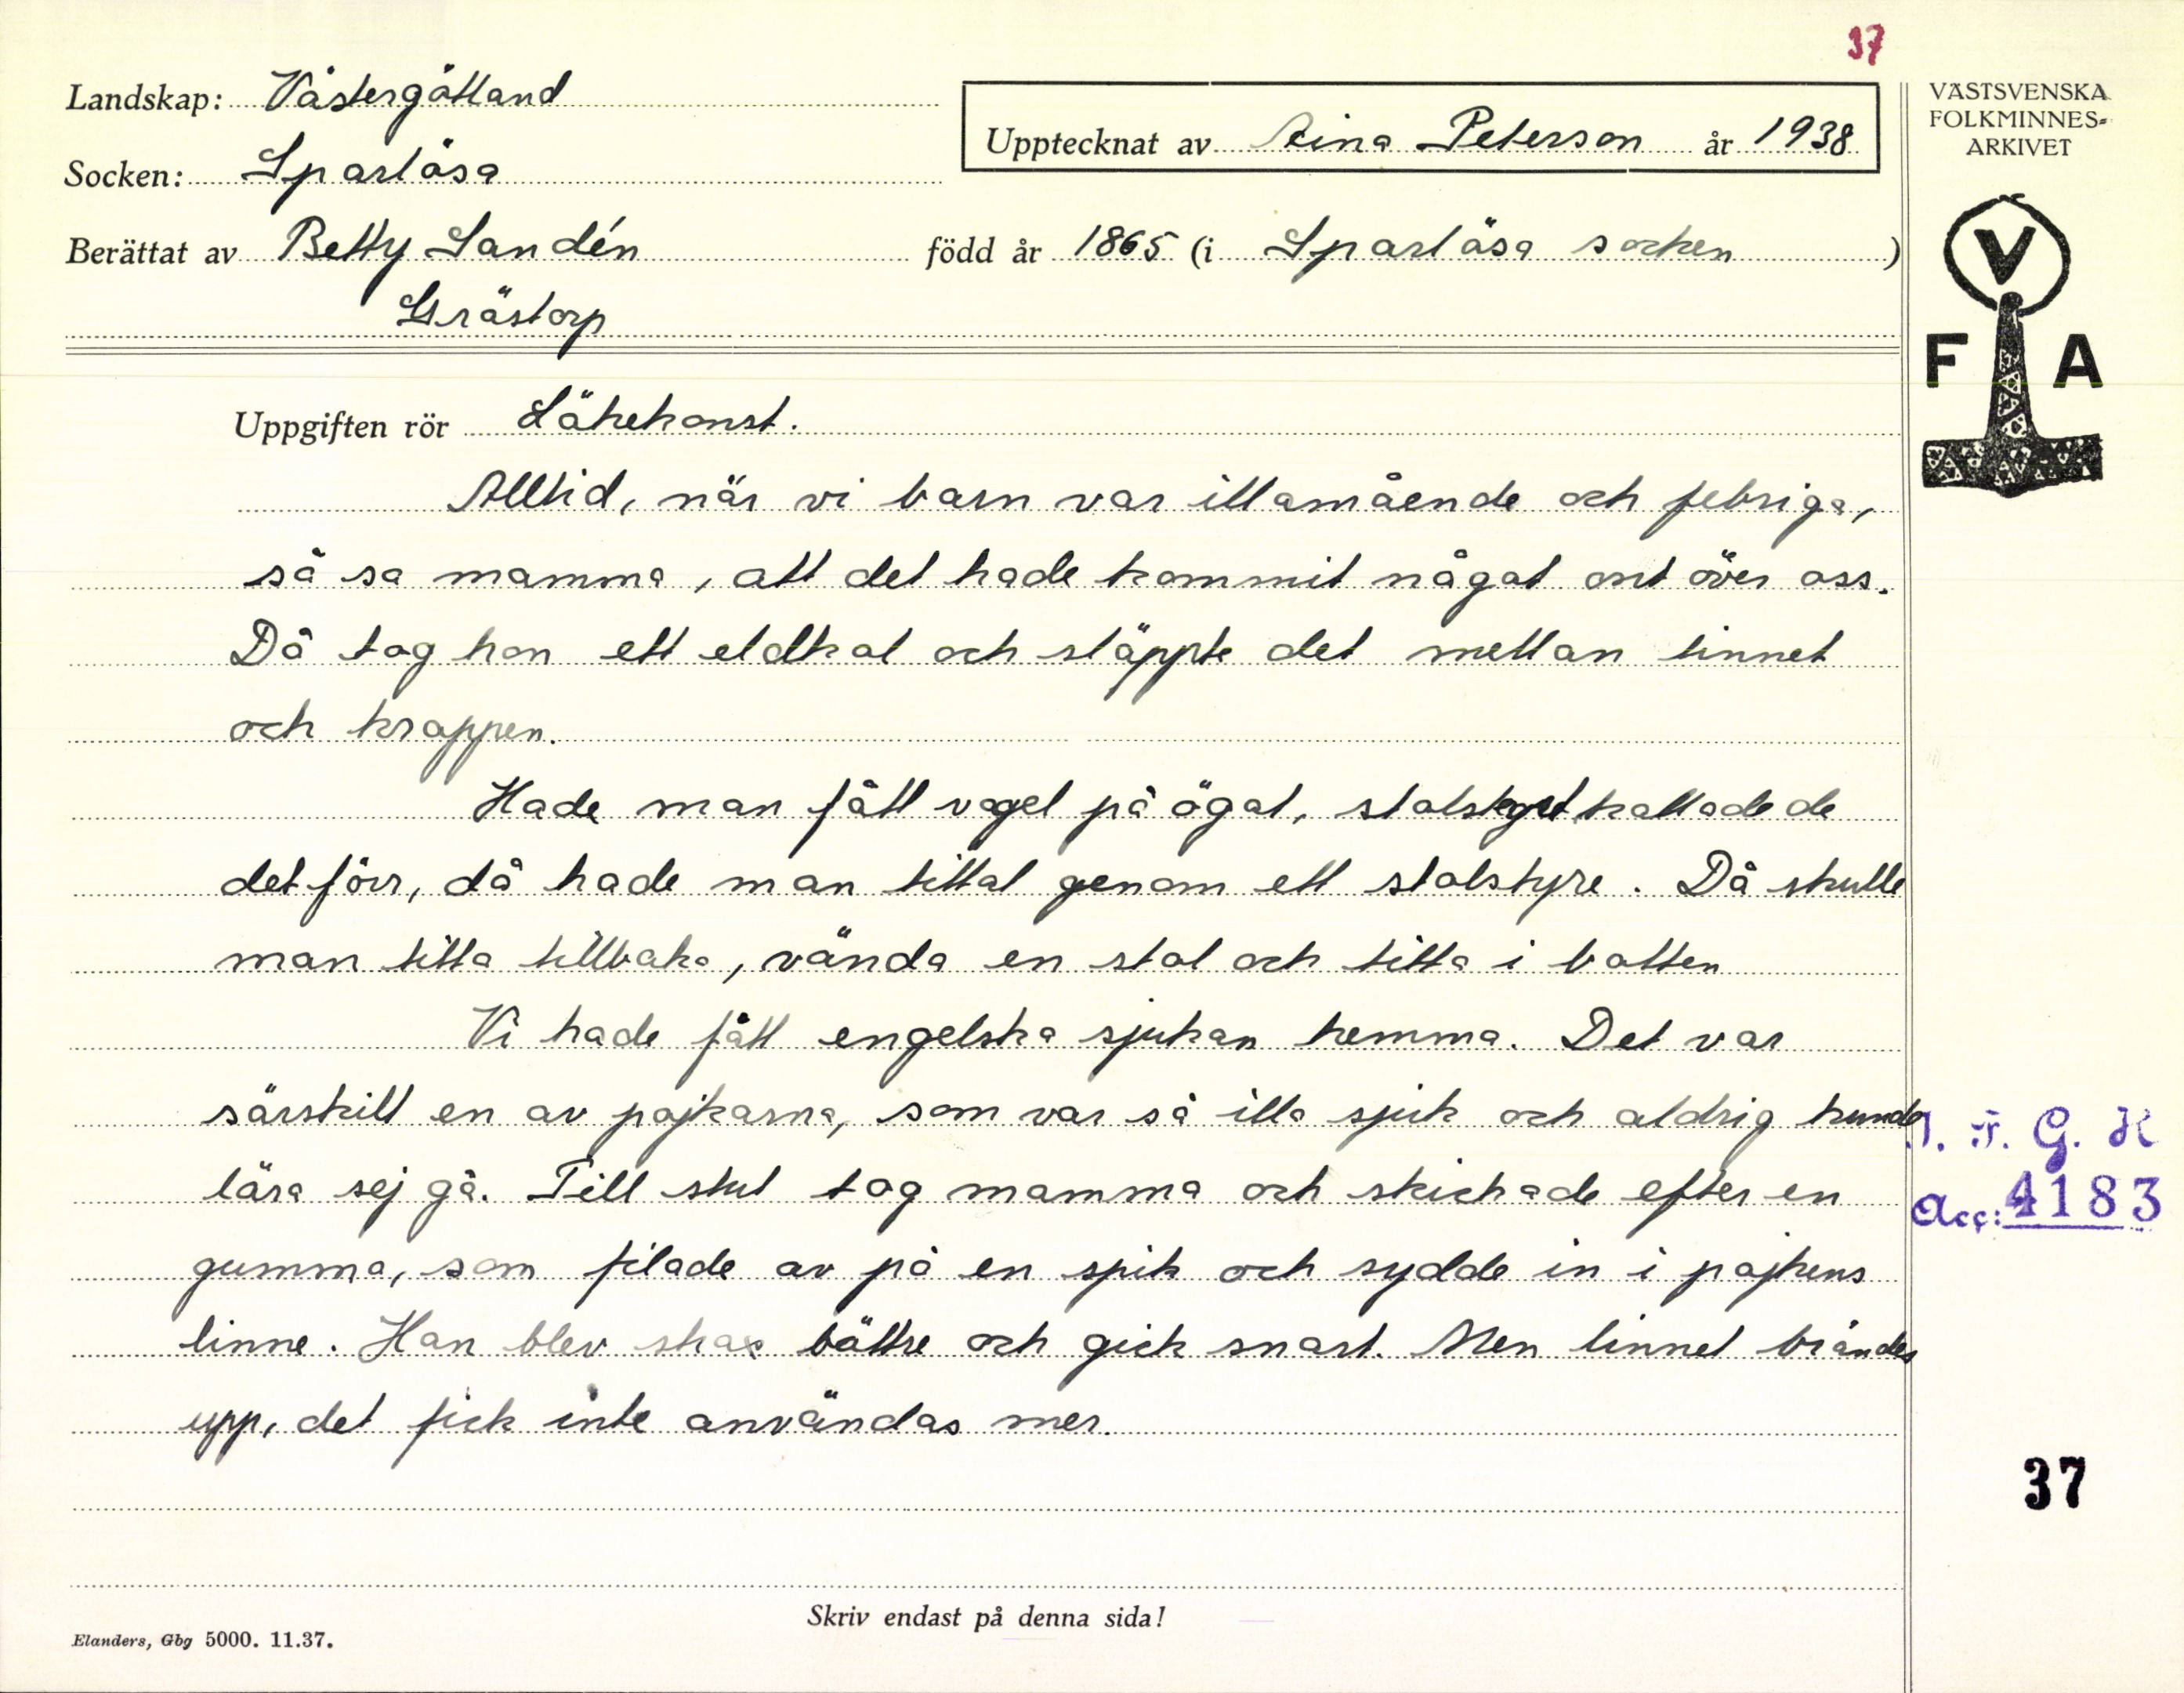 37
Landskap: Västergötland
Upptecknat av Aina Peterson år 1938
Socken: Sparlösa
Berättat av Betty Sandén född år 1865 (i Sparlösa socken)
Grästorp
VÄSTSVENSKA
FOLKMINNES-
ARKIVET
V
F A
Uppgiften rör Läkekonst.
Alltid, när vi barn var illamående och febriga,
så sa mamma, att det hade kommit något ont över oss.
Då tog hon ett eldkol och släppte det mellan linnet
och kroppen.
Hade man fått vagel på ögat, kallade de
det förr, då hade man tittat genom ett stolstyre. Då skulle
man titta tillbaka, vända en stol och titta i botten
Vi hade fått engelska sjukan hemma. Det var
särskilt en av pojkarna, som var så illa sjuk och aldrig kunde
lära sej gå. Till slut tog mamma och skickade efter en
gumma, som filade av på en spik och sydde in i pojkens
linne. Han blev bättre och gick snart. Men linnet brändes
upp, det fick inte användas mer.
I. F. G. H
Acc: 4183
37
Skriv endast på denna sida!
Elanders, Gbg 5000. 11.37.